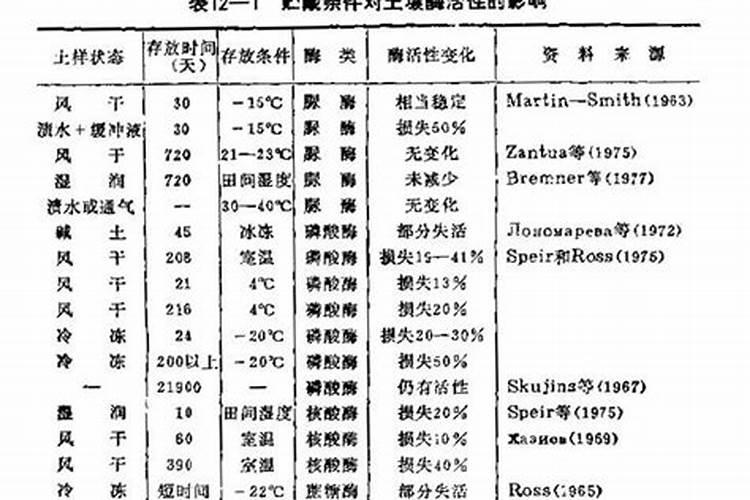 表12—1 贮藏条件对土壤酶活性的影响
土样状态 存放时间(天) 存放条件 酶 类 酶活性变化 资 料 来 源
风 干 30 －15℃ 脲 酶 相当稳定 Martin—Smith(1963)
渍水＋缓冲液 30 －15℃ 脲 酶 损失50%
风 干 720 21—23℃ 脲 酶 无变化 Zantua等(1975)
湿 润 720 田间湿度 脲 酶 未减少 Bremner等(1977)
渍水或通气 — 30—40℃ 脲 酶 无变化
碱 土 45 冰冻 磷酸酶 部分失活 Лономарева等(1972)
风 干 208 室温 磷酸酶 损失19—41% Speir和Ross(1975)
风 干 21 4℃ 磷酸酶 损失13%
风 干 216 4℃ 磷酸酶 损失20%
冷 冻 24 －20℃ 磷酸酶 损失20—30%
冷 冻 200以上 －20℃ 磷酸酶 损失50%
— 21900 — 磷酸酶 仍有活性 Skujins等(1967)
湿 润 10 田间湿度 核酸酶 损失20% Speir等(1975)
风 干 60 室温 核酸酶 损失10% Хазиов(1969)
风 干 390 室温 核酸酶 损失40%
冷 冻 短时间 －22℃ 蔗糖酶 部分失活 Ross(1965)